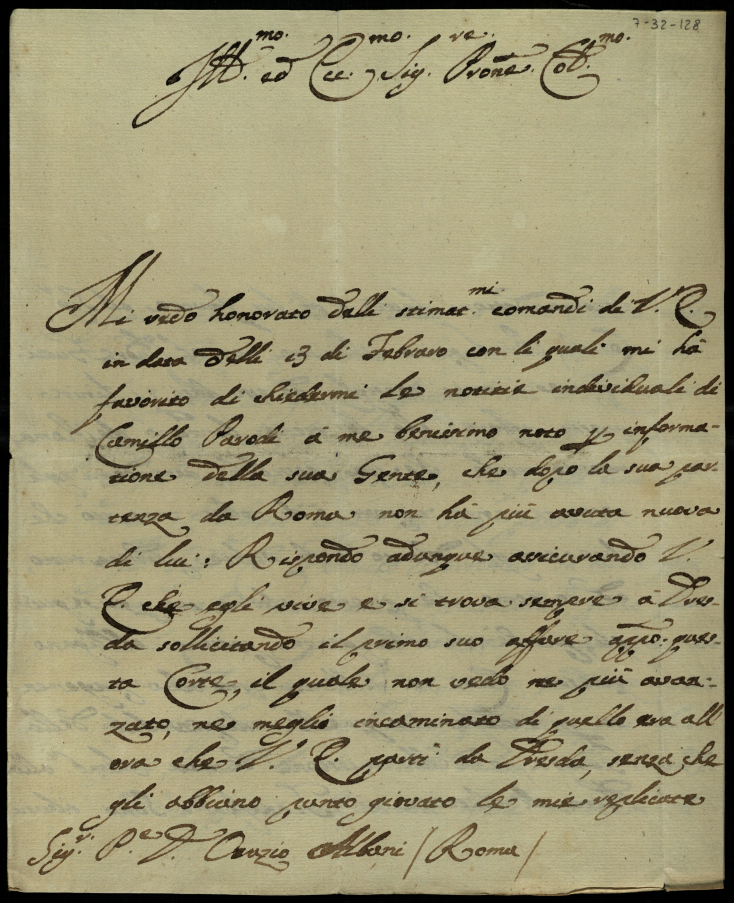 7-32-128
Ill.mo ed Ecc.mo Sig.re Prone Col.mo
Mi vedo honorato delli stimat.mi comandi di V. E.
in data delli 13 di Febraro con li quali mi hà
favorito di chiedermi le notitie individuali di
Camillo Parodi à me benissimo noto p informa-
tione della sua Gente, che dopo la sua par-
tenza da Roma non hà più avuta nuova
di lui: Rispondo adunque assicurando V.
E. che egli vive e si trova sempre à Dres-
da sollicitando il primo suo affare appo. ques-
ta Corte, il quale non vedo ne più avan-
zato, ne meglio incaminato di quello era all
ora che V. E. partì da Dresda, senza che
gli abbiano punto giovato le mie replicate
Sig.r P.e D. Orazio Albani / Roma /